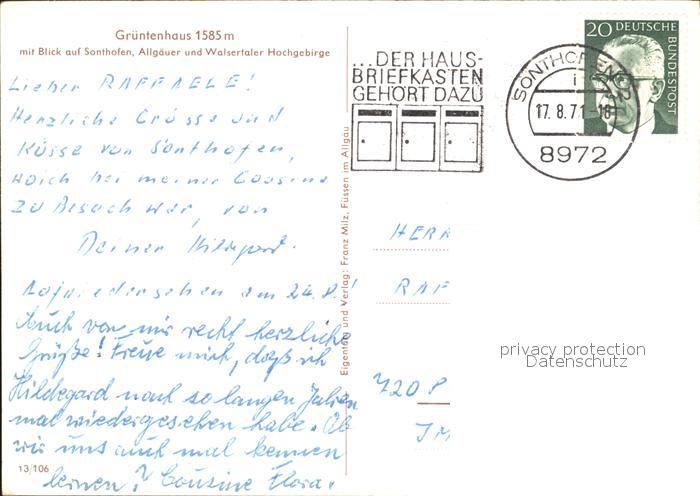 Grüntenhaus 1585 m
mit Blick auf Sonthofen, Allgäuer und Walsertaler Hochgebirge
Lieber RAFFAELE!
Herzliche Grüsse und
Küsse von Sonthofen,
wo ich bei meiner Cousine
zu Besuch war, von
Deiner Hildegard.
Aufwiedersehen am 24.8.!
Auch von mir recht herzliche
Grüße! Freue mich, daß ich
Hildegard nach so langen Jahren
mal wiedergesehen habe. Ob
wir uns auch mal kennen
lernen? Cousine Flora.
13/106
Eigentum und Verlag: Franz Milz, Füssen im Allgäu
...DER HAUS-
BRIEFKASTEN
GEHÖRT DAZU
SONTHOFEN
17. 8. 71-18
8972
20 DEUTSCHE
BUNDESPOST
HERR
RAF
720 P
IM
privacy protection
Datenschutz